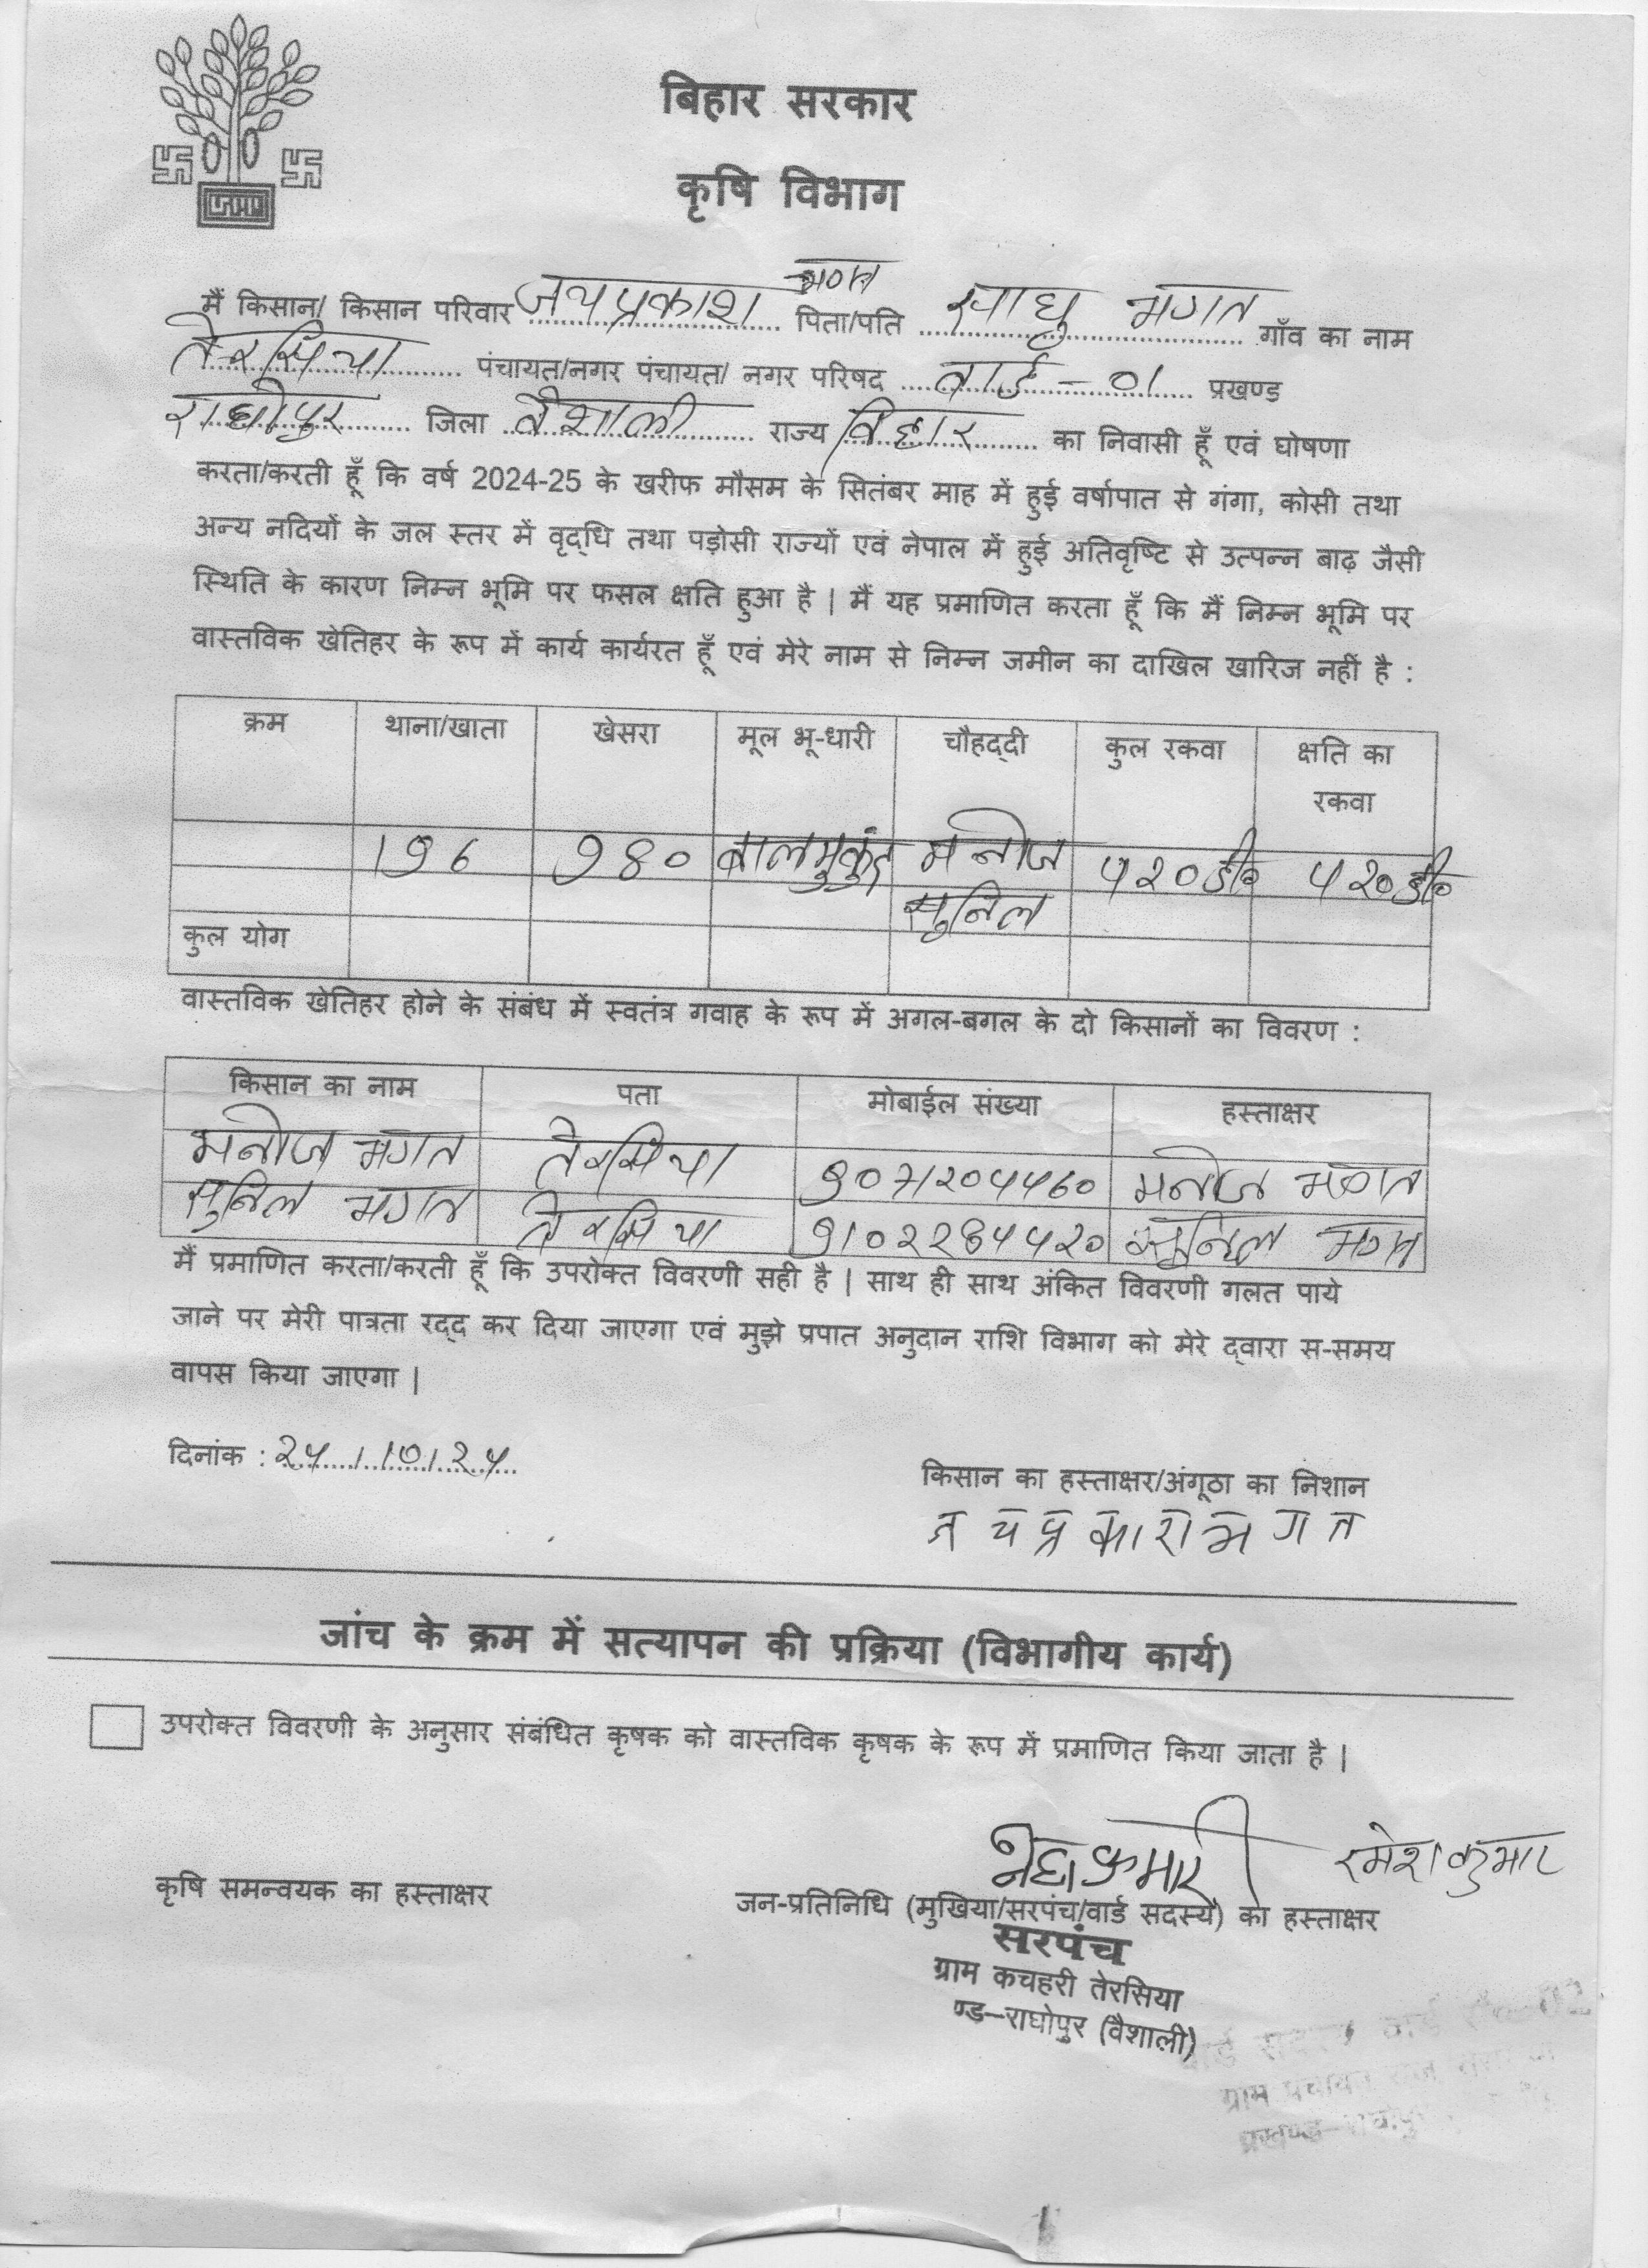 बिहार सरकार
कृषि विभाग
भगत
मैं किसान/ किसान परिवार जयप्रकाश पिता/पति साधु भगत गाँव का नाम
तेरसिया पंचायत/नगर पंचायत/ नगर परिषद वार्ड-01 प्रखण्ड
राघोपुर जिला वैशाली राज्य बिहार का निवासी हूँ एवं घोषणा
करता/करती हूँ कि वर्ष 2024-25 के खरीफ मौसम के सितंबर माह में हुई वर्षापात से गंगा, कोसी तथा
अन्य नदियों के जल स्तर में वृद्धि तथा पड़ोसी राज्यों एवं नेपाल में हुई अतिवृष्टि से उत्पन्न बाढ़ जैसी
स्थिति के कारण निम्न भूमि पर फसल क्षति हुआ है | मैं यह प्रमाणित करता हूँ कि मैं निम्न भूमि पर
वास्तविक खेतिहर के रूप में कार्य कार्यरत हूँ एवं मेरे नाम से निम्न जमीन का दाखिल खारिज नहीं है :
क्रम थाना/खाता खेसरा मूल भू-धारी चौहद्दी कुल रकवा क्षति का
रकवा
बालमुकुंद मनोज
सुनिल
कुल योग
वास्तविक खेतिहर होने के संबंध में स्वतंत्र गवाह के रूप में अगल-बगल के दो किसानों का विवरण :
किसान का नाम पता मोबाईल संख्या हस्ताक्षर
मनोज भगत तेरसिया मनोज भगत
सुनिल भगत तेरसिया सुनिल भगत
मैं प्रमाणित करता/करती हूँ कि उपरोक्त विवरणी सही है | साथ ही साथ अंकित विवरणी गलत पाये
जाने पर मेरी पात्रता रद्द कर दिया जाएगा एवं मुझे प्रपात अनुदान राशि विभाग को मेरे द्वारा स-समय
वापस किया जाएगा |
दिनांक :
किसान का हस्ताक्षर/अंगूठा का निशान
जयप्रकाश भगत
जांच के क्रम में सत्यापन की प्रक्रिया (विभागीय कार्य)
उपरोक्त विवरणी के अनुसार संबंधित कृषक को वास्तविक कृषक के रूप में प्रमाणित किया जाता है |
कुमारी रमेश कुमार
कृषि समन्वयक का हस्ताक्षर जन-प्रतिनिधि (मुखिया/सरपंच/वार्ड सदस्य) का हस्ताक्षर
सरपंच
ग्राम कचहरी तेरसिया
ण्ड–राघोपुर (वैशाली)
ग्राम
प्रखण्ड